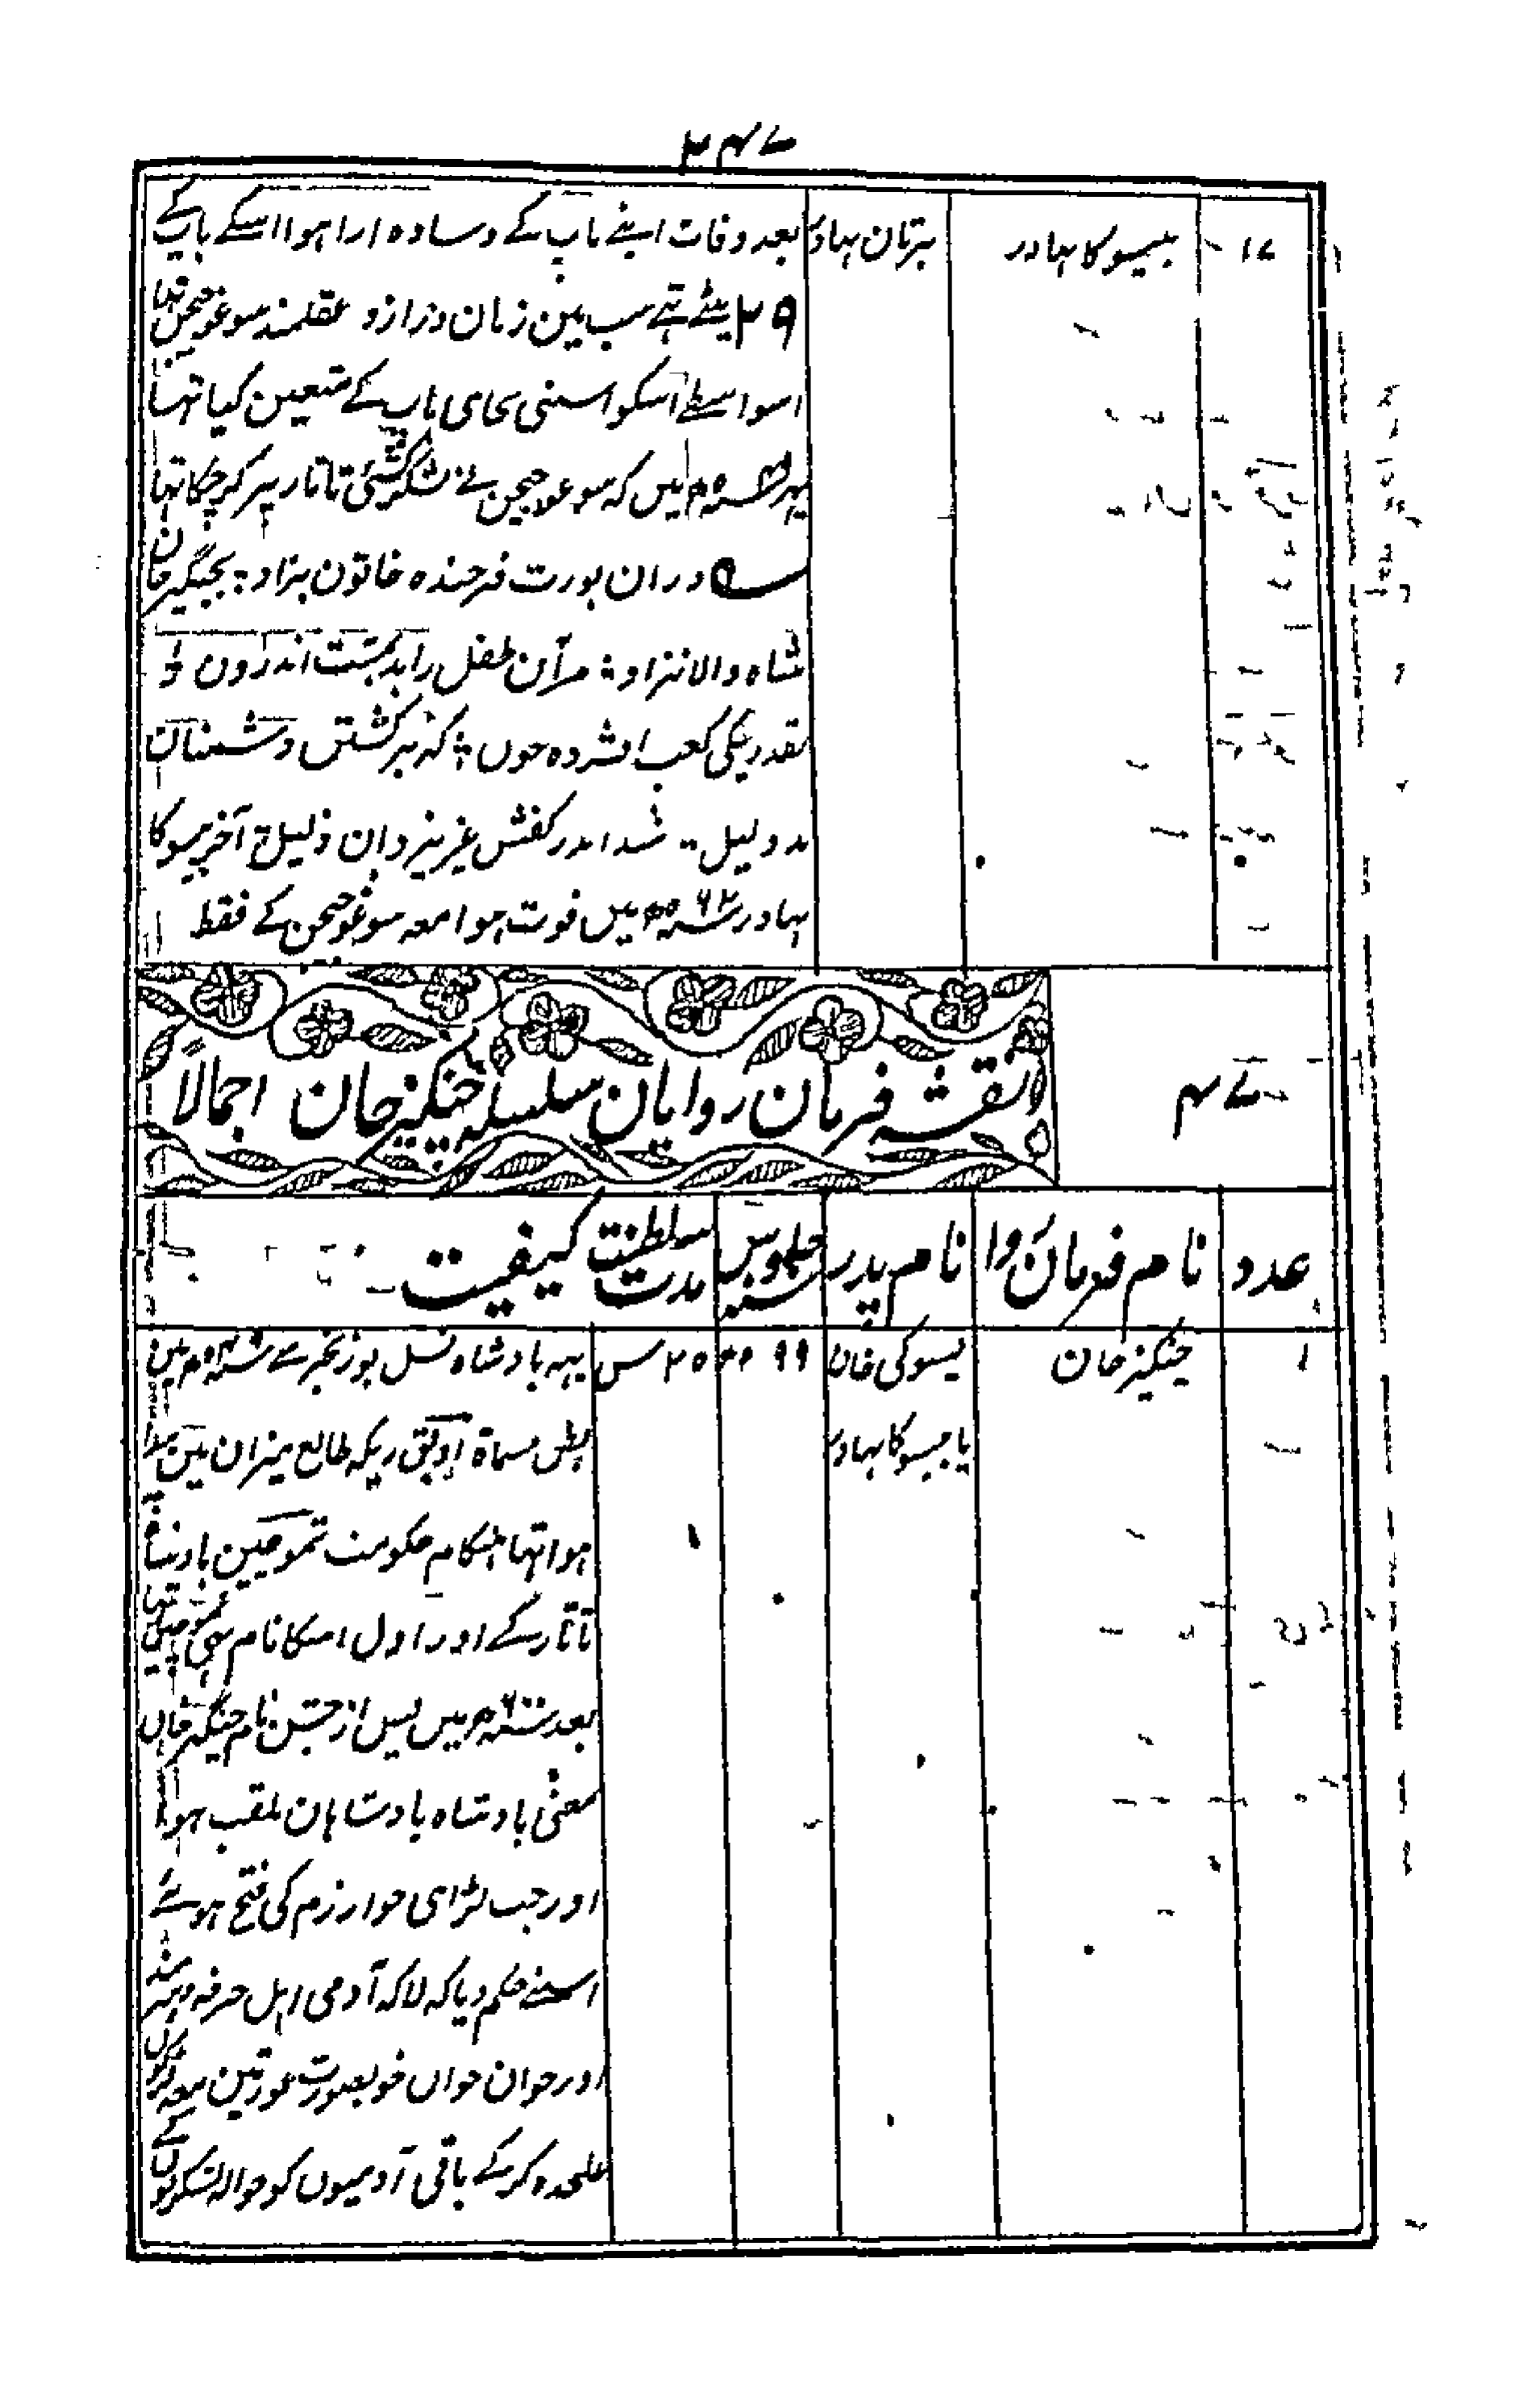 ۳۴۷
۱۷ بیسوکا بہادر برتان بہادر بعد وفات اپنے باپ کے وسادہ ارا ہوا اسکے باپ کے
۲۹ بیٹے تہے سب مین زبان دراز و عقلمند سوغوجیجن تہا
اسواسطے اسکو اسنی بجای باپ کے متعین کیا تہا
میں کہ سوغوجیجن نے لشکر کشی تاتار پر کر چکا تہا
دران یورت فرخنده خاتون بزاد : چنگیز خان
شاه والا نژاد : مرآن طفل را بد بمشت اندرون
بقدر یکی کعب افشرده خون : که بر کشتن دشمنان
بد دلیل شد اندر کفش عزیز دان ذلیل آخر بیسوکا
بہادر ۵۶۲ھ میں فوت ہوا معہ سوغوجیجن کے فقط
۴۷ نقشہ فرمان روایان سلسلہ چنگیز خان اجمالاً
عدد نام فرمان روا نام پدر سنہ جلوس مدت سلطنت کیفیت
۱ چنگیز خان یسوکی خان ۵۹۹ھ ۲۵ س یہہ بادشاہ نسل بوزنجر سے میں
یا بیسوکا بہادر بطن مسماۃ طالع میزان مین پیدا
ہوا تہا ہنگام حکومت تموجین بادشاہ
تاتار کے اور اول اسکا نام بہی تموجین تہا
بعد میں پس از جشن نام چنگیز خان
معنی بادشاه بادشاہان ملقب ہوا
اور جب لڑای خوارزم کی فتح ہوئے
اسنے حکم دیا کہ لاکہ آدمی اہل حرفہ و ہنرمند
اور جوان جوان خوبصورت عورتین معہ لڑکوں
علحدہ کر کے باقی آدمیوں کو حوالہ لشکریوں کے